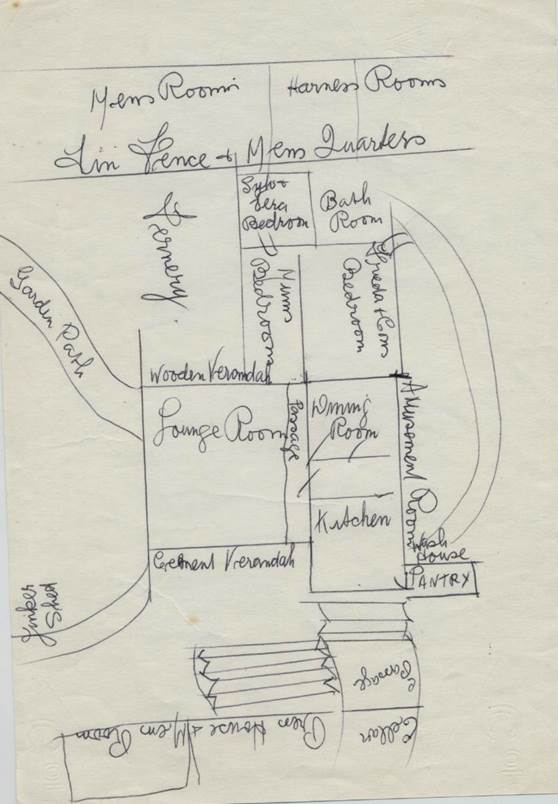 Mens Rooms
Harness Rooms
Tin Fence & Mens Quarters
Sylv &
Vera
Bedroom
Bath
Room
Fernery.
Garden Path
Mums
Bedroom
Freda &
Bedroom
Wooden Verandah
Lounge Room
Passage
Dining
Room
Amusement Room
Kitchen
Wash
House
PANTRY
Cement Verandah
Tinker
Shed
Garage
Cellar
House & Mens Room